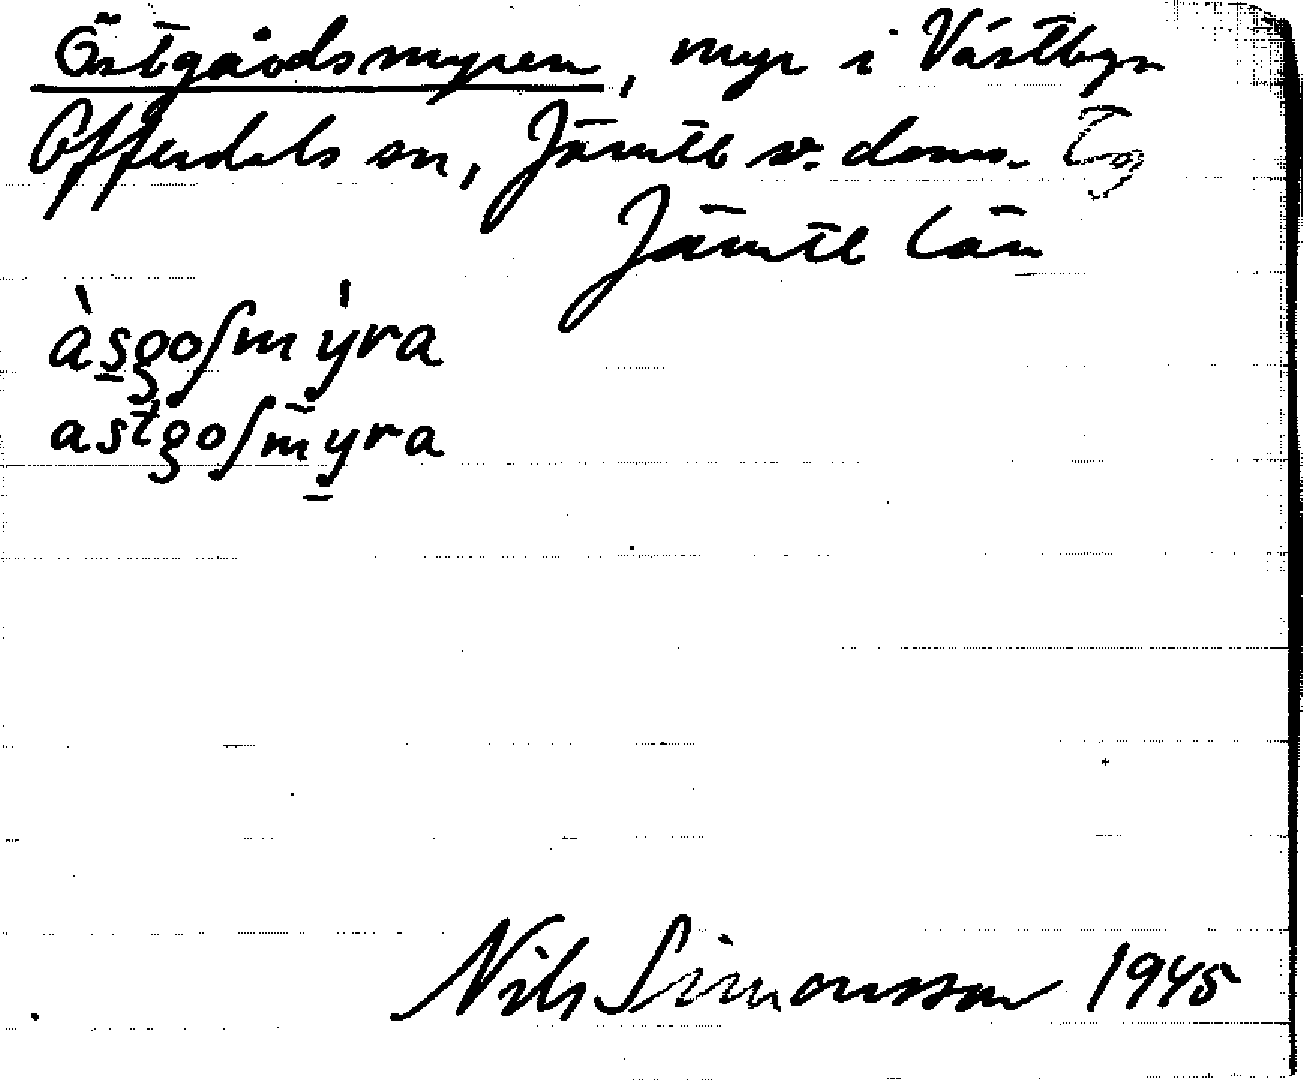 Östgårdsmyren, myr i Västbyn
Offerdals sn, Jämtl v. doms. Tg
Jämtl län
àsgoſmýra
astgoſmyra
Nils Simonsson 1945